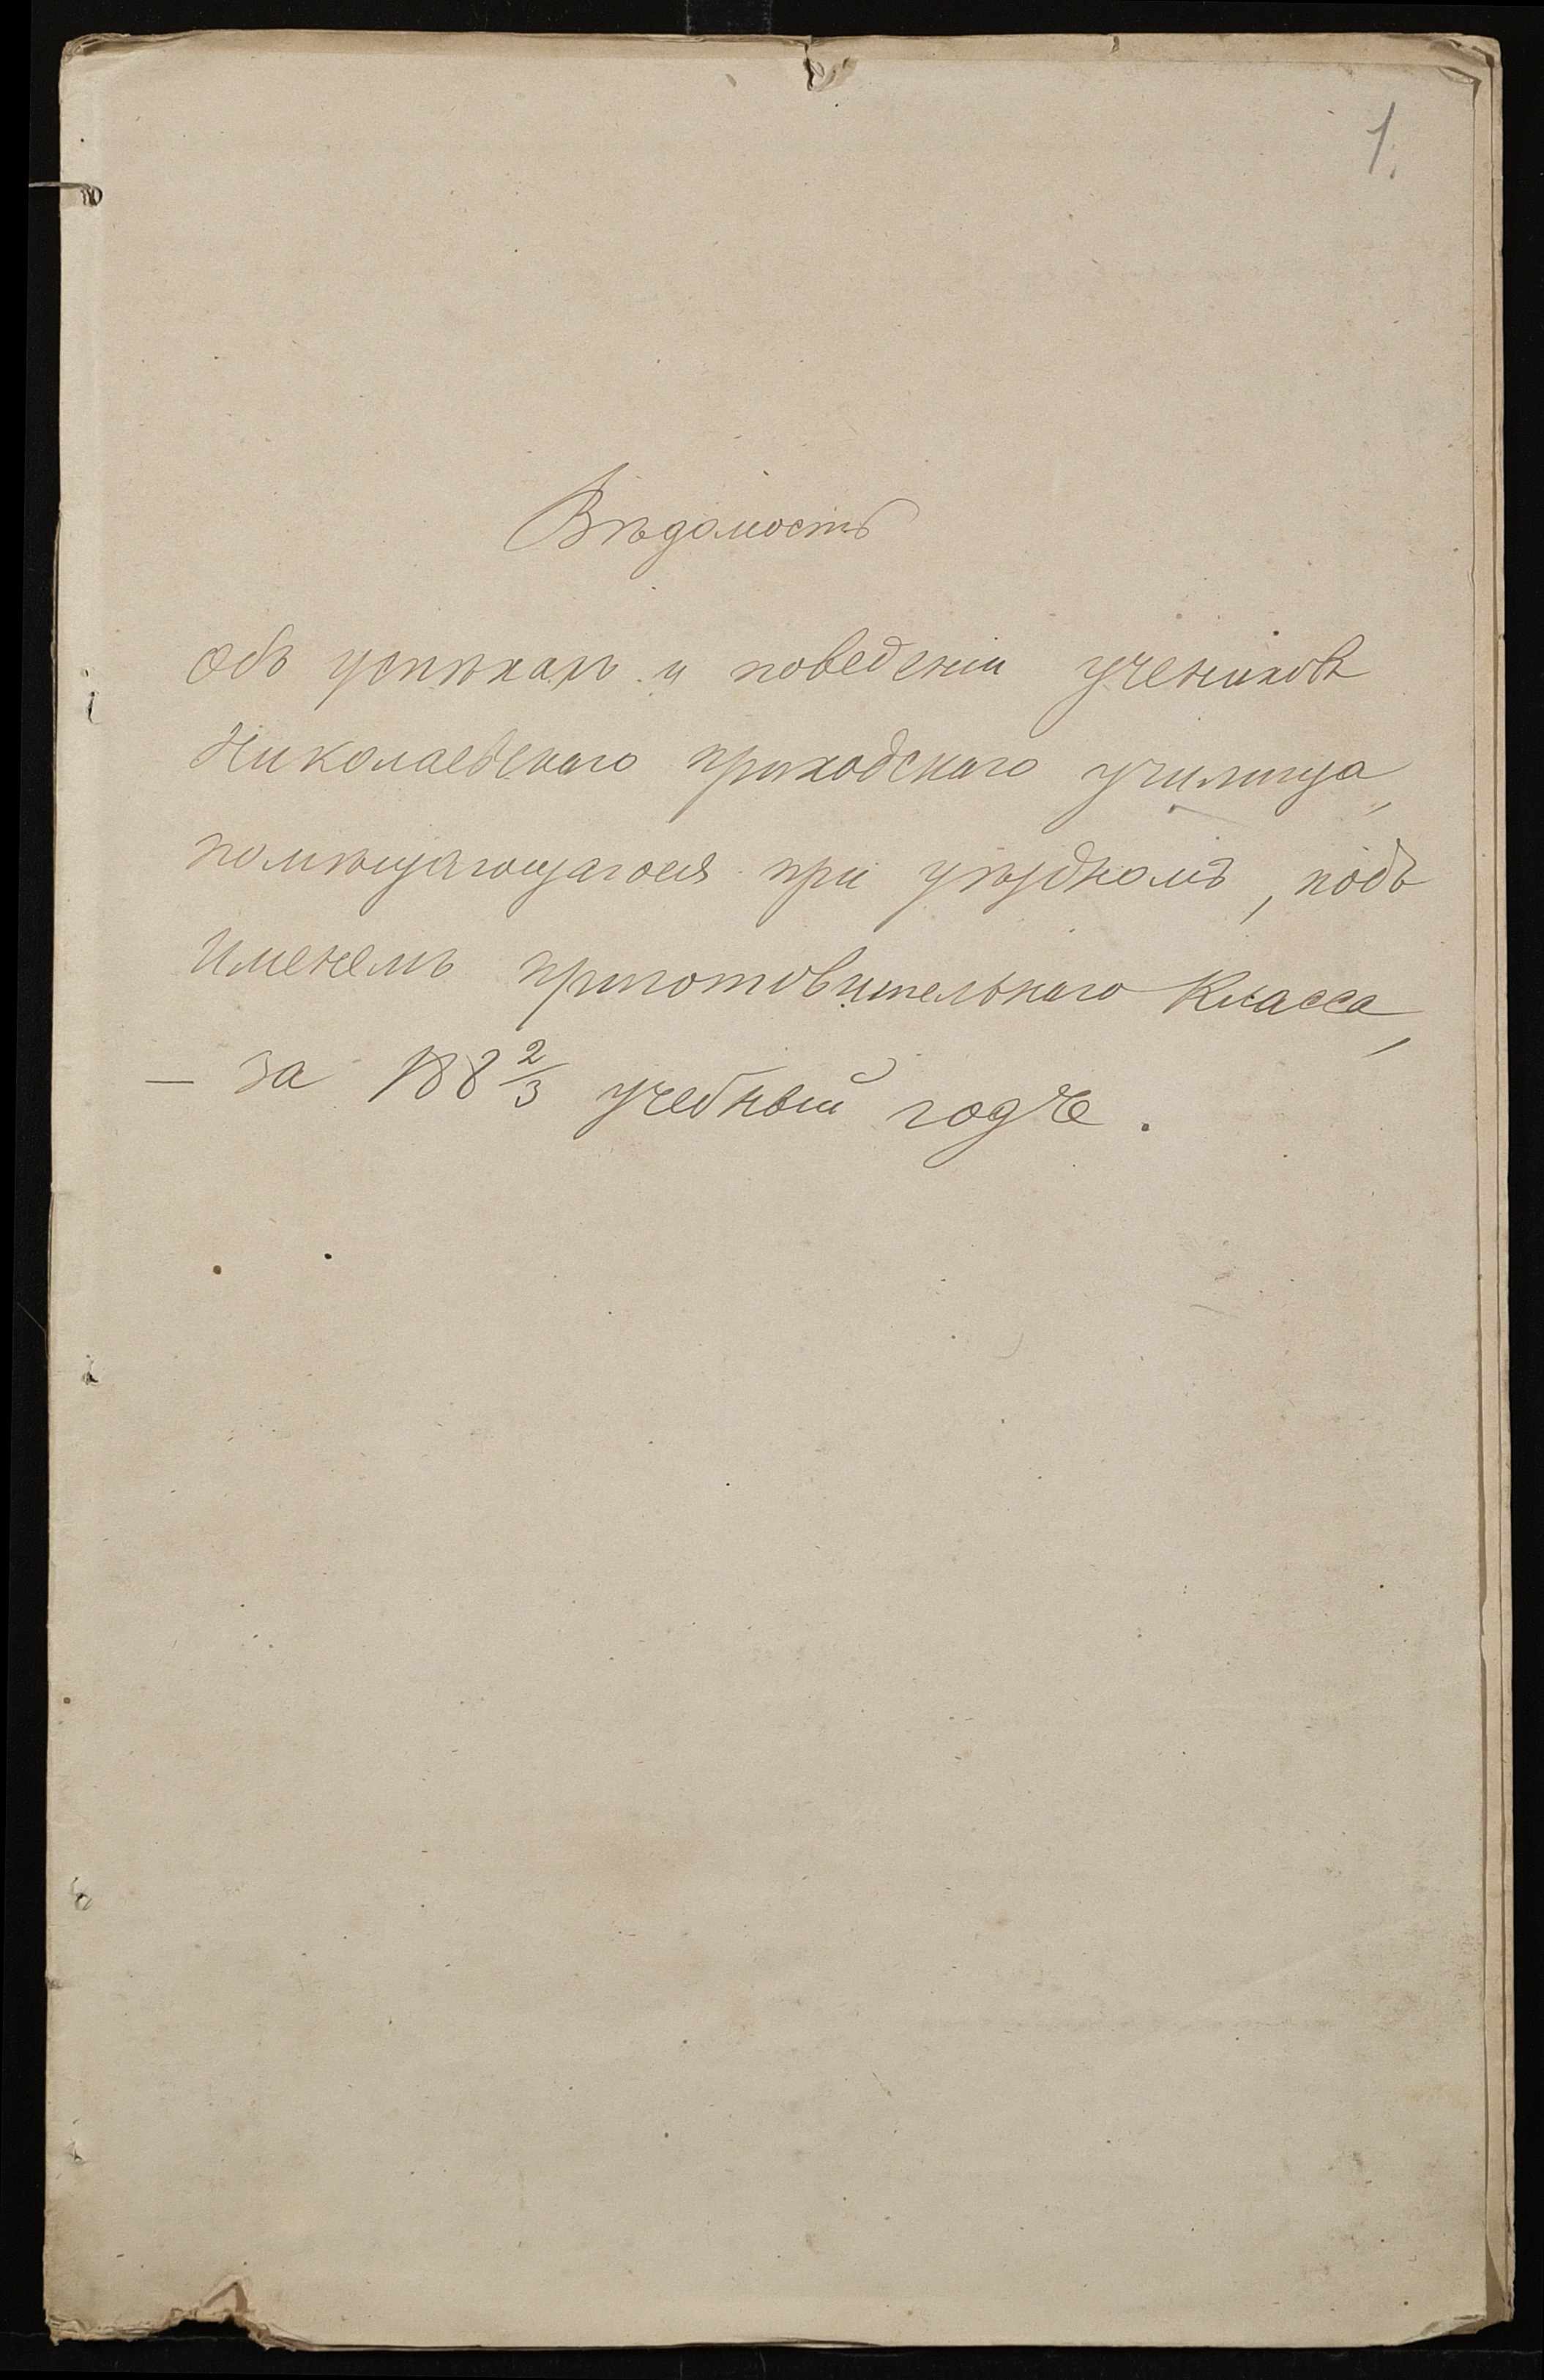 1.
Вѣдомость
объ успѣхахъ и поведеніи учениковъ
Николаевскаго приходскаго училища,
помѣщающагося при уѣздномъ, подъ
именемъ приготовительнаго класса,
— за 188 2/3 учебный годъ.